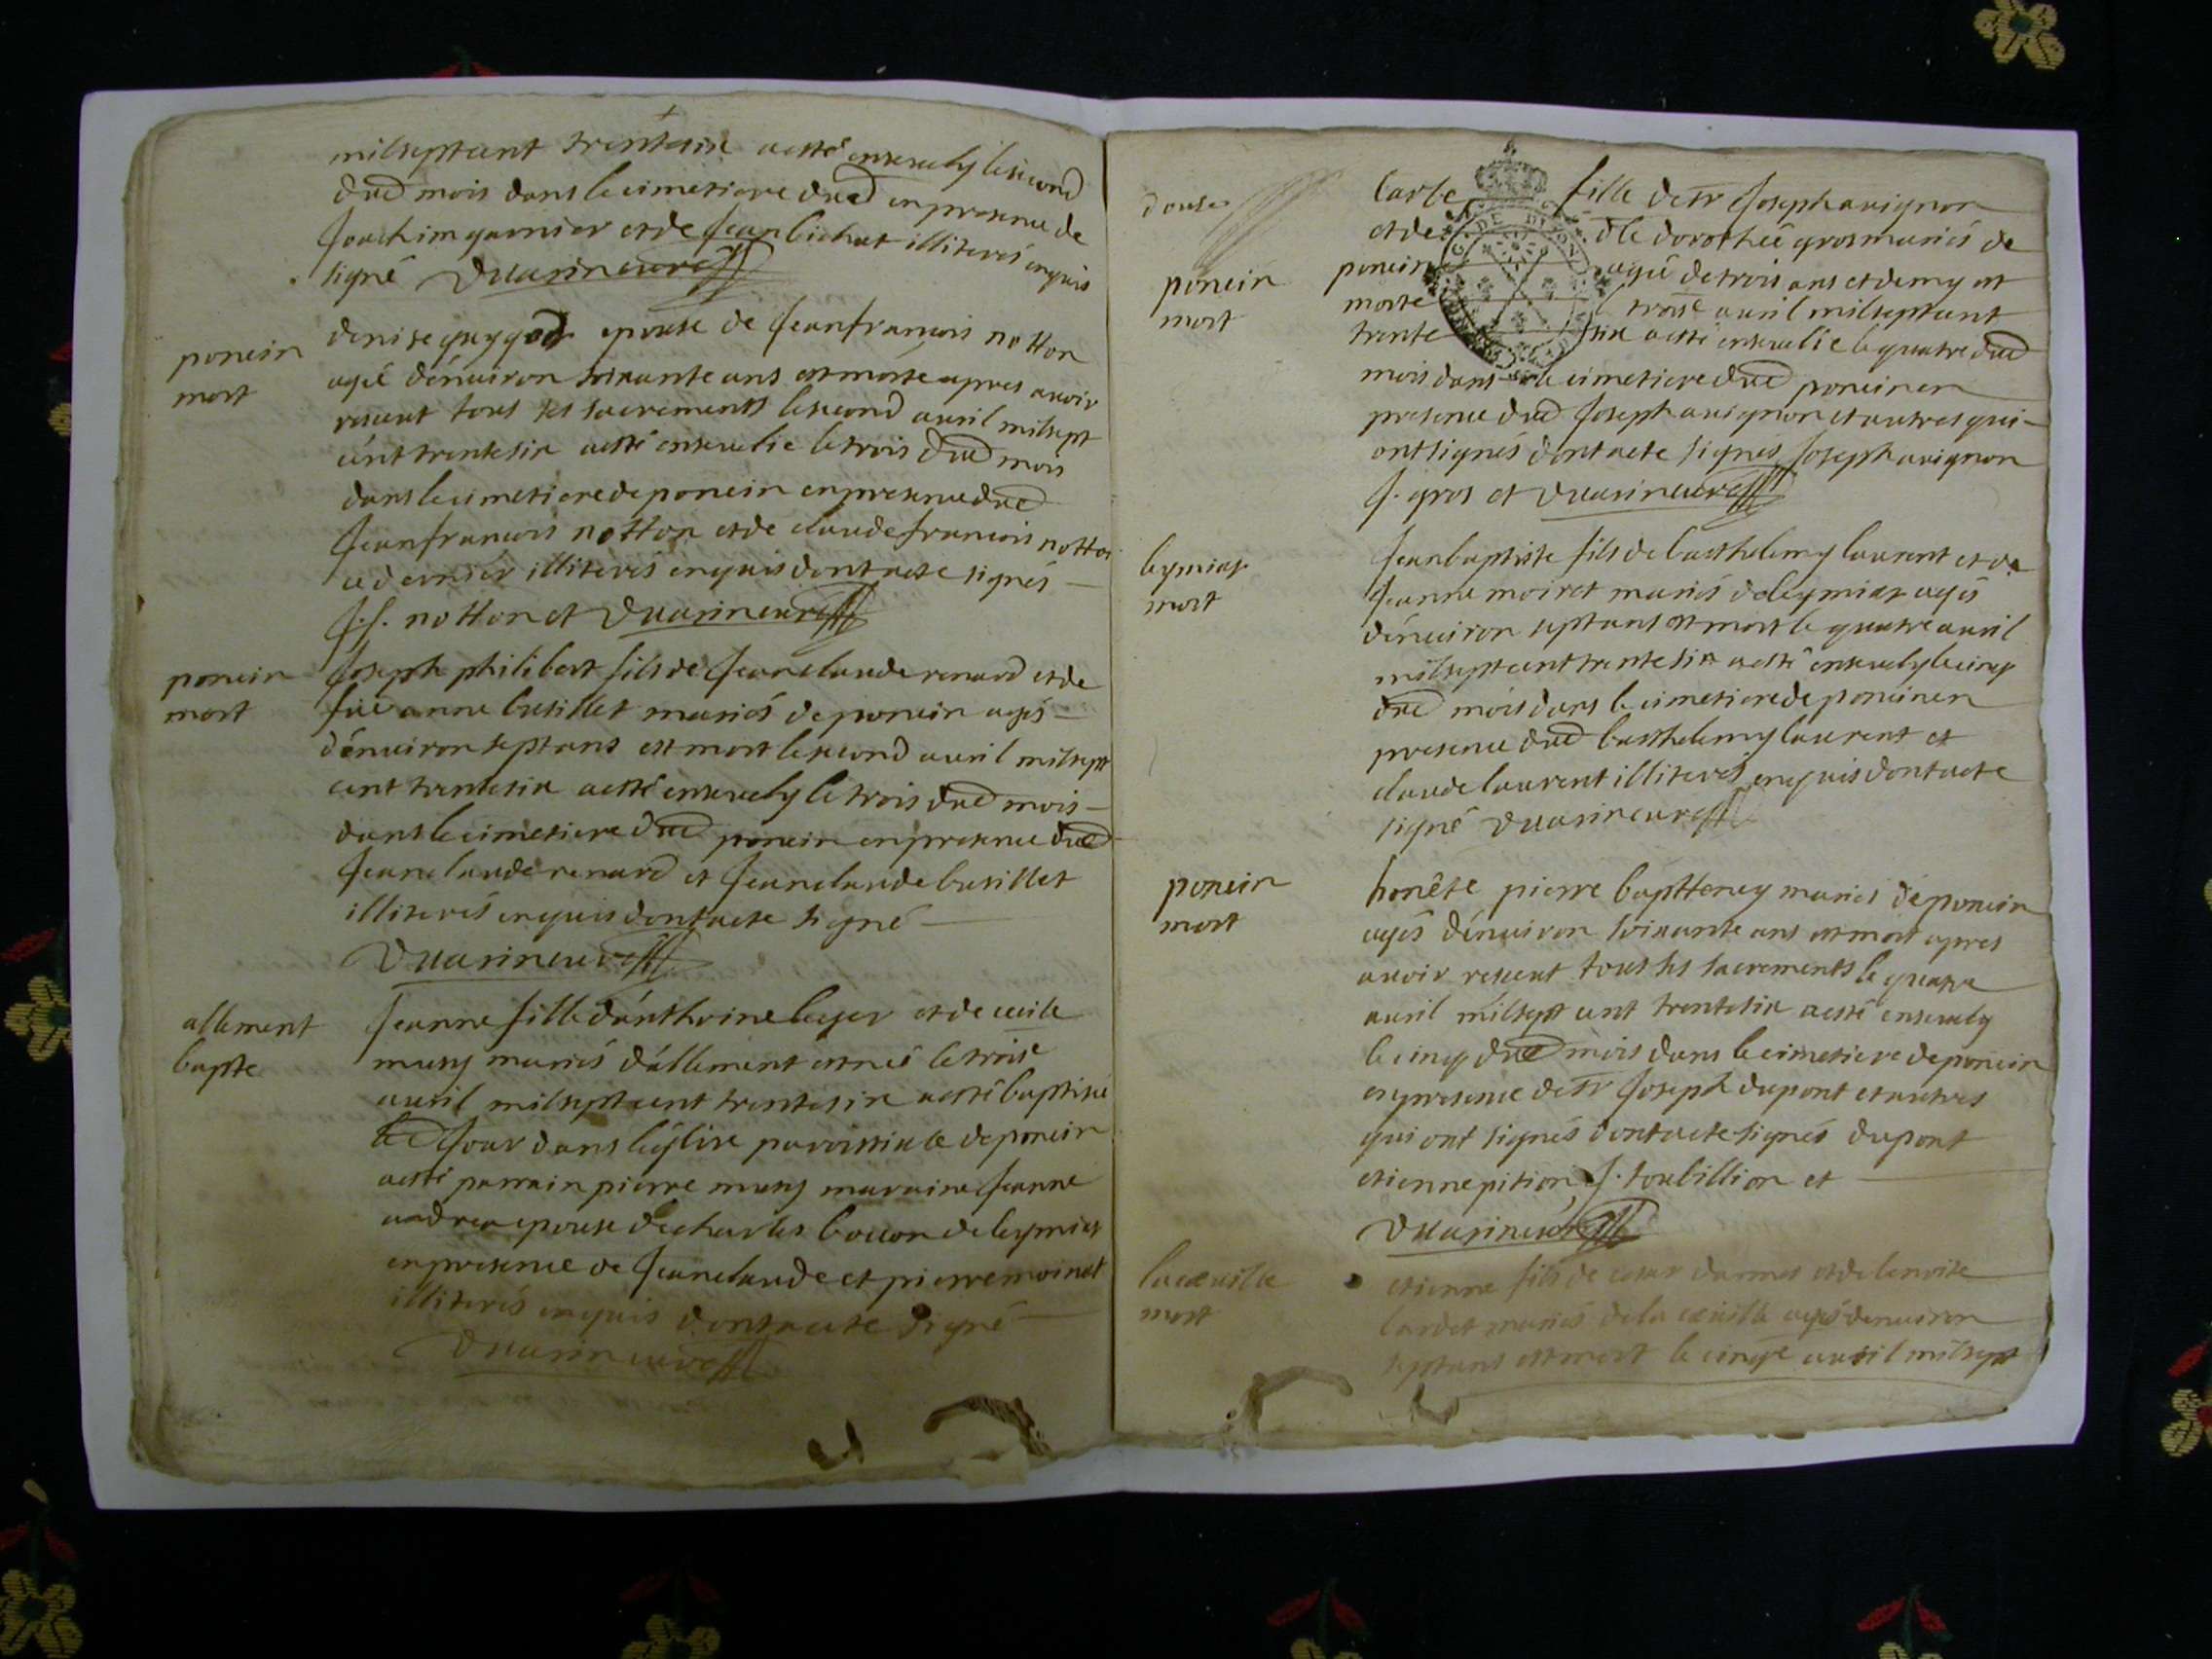 milseptcent trentesix a esté ensevely le second
dud mois dans le cimetiere dud en presence de
Joachim garnier et de Jean bichat illiterés enquis
signé Duasin curé
poncin
mort
denise guygod epouse de Jeanfrancois notton
agée d'énuiron soixante ans est morte apres auoir
receut tous ses sacrements le second auril milsept
cent trentesix a esté enseuelie le trois dud mois
dans le cimetiere de poncin en presence dud
Jeanfrancois notton et de claude francois notton
ce dernier illiterés enquis dont acte signés
J.f. notton et Duasin curé
poncin
mort
Joseph philibert fils de Jeanclaude renard et de
fue anne busillet mariés de poncin agés
d'énuiron sept ans est mort le second auril milsept
cent trentesix a esté enseuely le trois dud mois
dans le cimetiere dud poncin en presence dud
Jeanclaude renard et Jeanclaude busillet
illiterés enquis dont acte signé
Duasin curé
allement
bapte
Jeanne fille d'anthoine leger et de cecile
musy mariés d'allement est née le troise
auril milsept cent trentesix a esté baptisée
led Jour dans l'églize paroissialle de poncin
a esté parrain pierre musy maraine Jeanne
epouse de charles bocon de leymiat
en presence de Jeanclaude et pierre moinet
illiterés enquis dont acte signé
Duasin curé
douse
poncin
mort
barbe fille de sr Joseph auignon
et de dlle dorothée gros mariés de
poncin agée de trois ans et demy est
morte l troise auril milseptcent
trente six a esté enseuelie le quatre dud
mois dans le cimetiere dud poncin en
presence dud Joseph auignon et autres qui
ont signés dont acte signés Joseph auignon
J. gros et Duasin curé
leymiat
mort
Jeanbaptiste fils de barthelemy laurent et de
Jeanne moiret mariés de leymiat agés
d'énuiron sept ans est mort le quatre auril
milsept cent trente six a esté enseuely le cinq
dud mois dans le cimetiere de poncin en
presence dud barthelemy laurent et
claude laurent illiterés enquis dont acte
signé Duasin curé
poncin
mort
honête pierre mariés de poncin
agés d'énuiron soixante ans est mort apres
auoir receut tous ses sacrements le quatre
auril milsept cent trentesix a esté enseuely
le cinq dud mois dans le cimetiere de poncin
en presence de sr Joseph dupont et autres
qui ont signés dont acte signés dupont
etienne pition J. toubillion et
Duasin curé
la cueille
mort
etienne fils de cesar dannet et de benoite
bardet mariés de la cueille agés d'enuiron
sept ans est mort le cinqe auril milsept